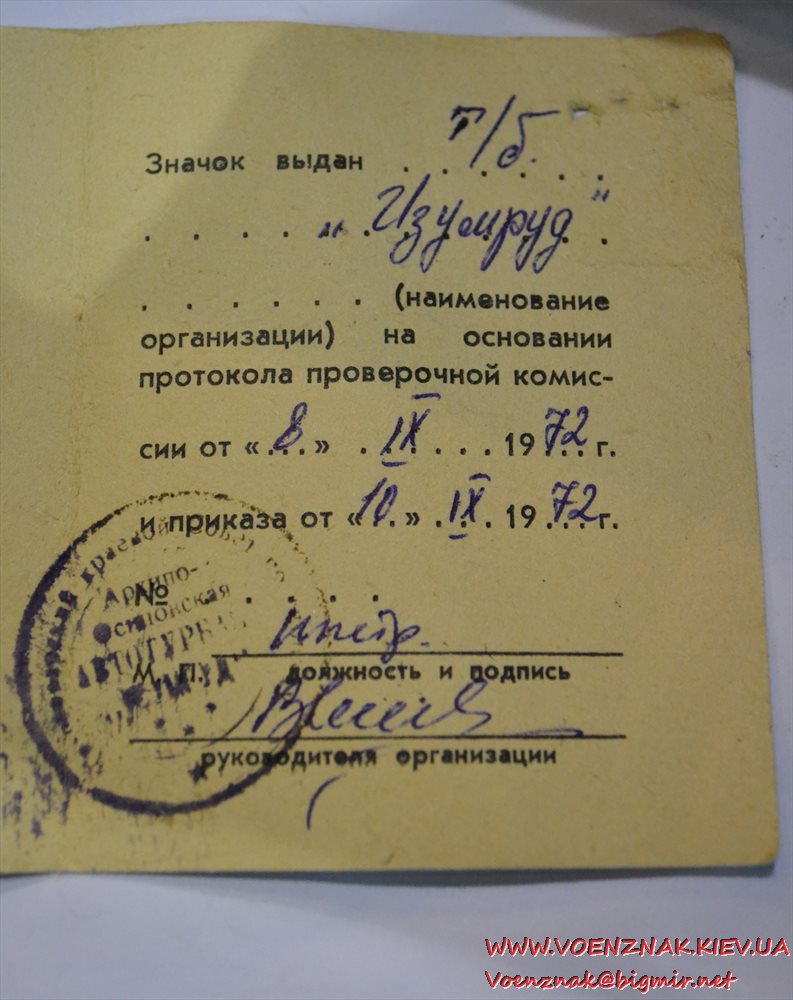 Значок выдан . т/б. . . .
. . . . . „Изумруд"
. . . . . . (наименование
организации) на основании
протокола проверочной комис-
сии от «.8.» . IX . . . 1972 г.
и приказа от «10.» . IX . 1972 г.
№ . . . . .
инстр.
М. П. должность и подпись
руководителя организации
краевой совет по
Архипо-
Осиповская
АВТОТУРБАЗА
WWW.VOENZNAK.KIEV.UA
Voenznak@bigmir.net